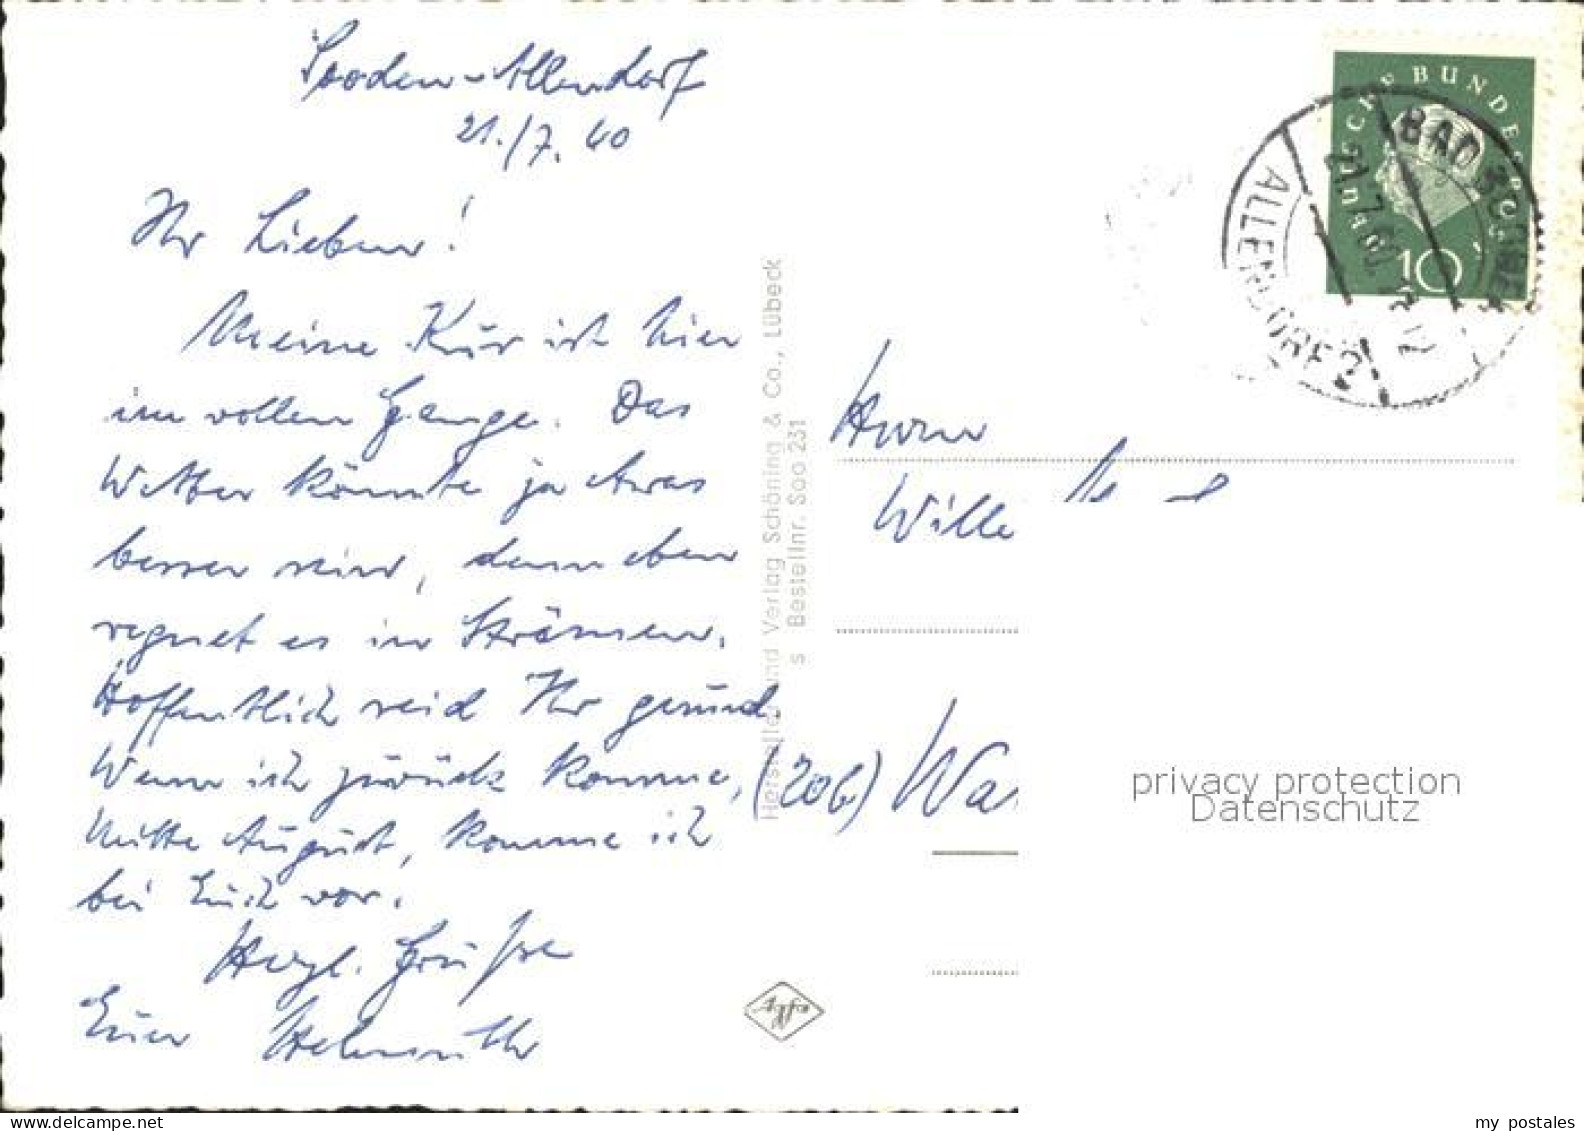 Sooden-Allendorf
21./7. 60
Ihr Lieben!
Meine Kur ist hier
im vollen Gange. Das
Wetter könnte ja etwas
besser sein, denn eben
regnet es in Strömen.
Hoffentlich seid Ihr gesund.
Wenn ich zurück komme,
Mitte August, komme ich
bei Euch vor.
Herzl. Grüße
Euer Helmuth
Hersteller und Verlag Schöning & Co., Lübeck
s Bestellnr. Soo 231
Agfa
DEUTSCHE BUNDESPOST
10
BAD SOODEN
ALLENDORF 2
21.7.60
Herrn
Wille
(20b) Wa
privacy protection
Datenschutz
www.delcampe.net
my postales